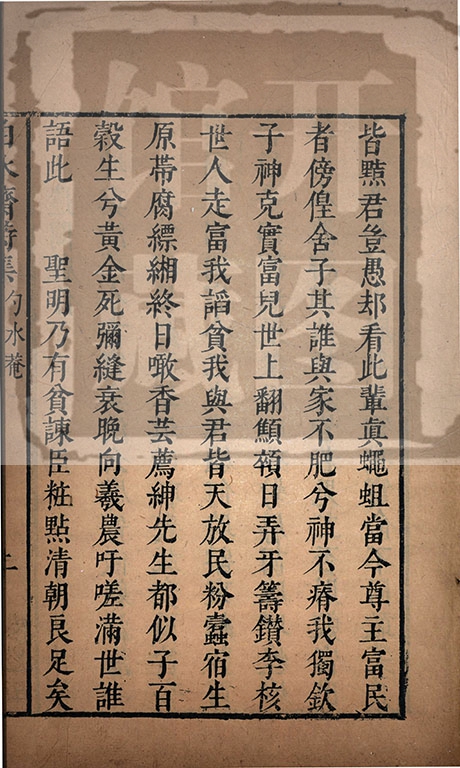 皆黠君豈愚却看此輩真蠅蛆當今尊主富民
者傍偟舍子其誰與家不肥兮神不瘠我獨欽
子神克實富兒世上翻顦顇日弄牙籌鑽李核
世人走富我謟貧我與君皆天放民粉蠹宿生
原帶腐縹緗終日噉香芸薦紳先生都似子百
穀生兮黃金死彌縫衰晚向羲農吁嗟滿世誰
語此　　聖明乃有貧諫臣粧點清朝良足矣
白水齋詩集 勺水菴
二